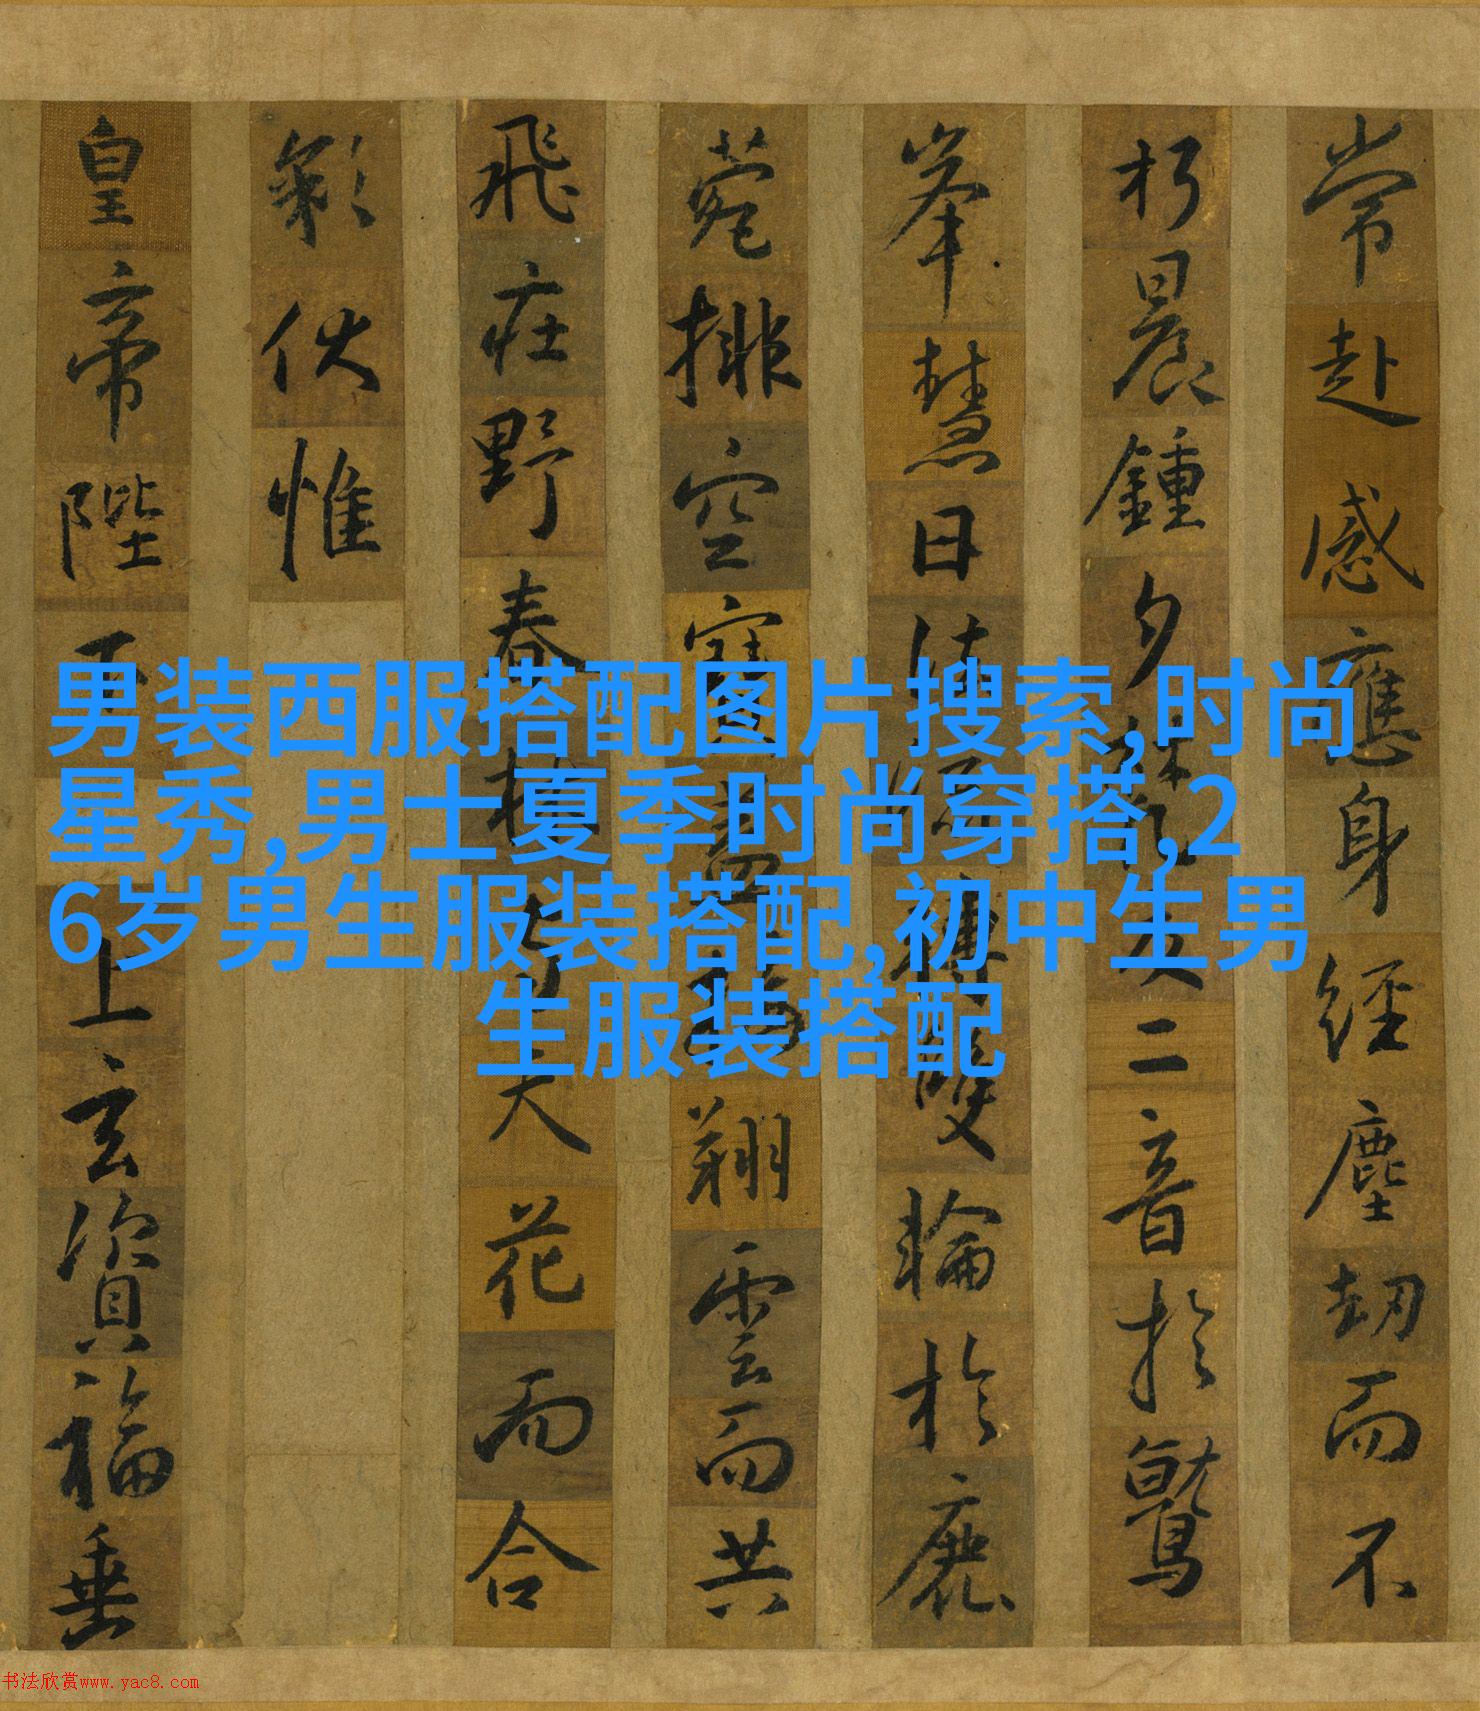 男装西服搭配图片搜索,时尚
星秀,男士夏季时尚穿搭,2
6岁男生服装搭配,初中生男
生服装搭配
常赴感應身經塵劫而不
朽晨鍾夕梵交二音於鷲
峯慧日法流轉雙輪於鹿
菀排空寶蓋接翔雲而共
飛莊野春林與天花而合
彩伏惟
皇帝陛下上玄資福垂
书法欣赏www.yac8.com